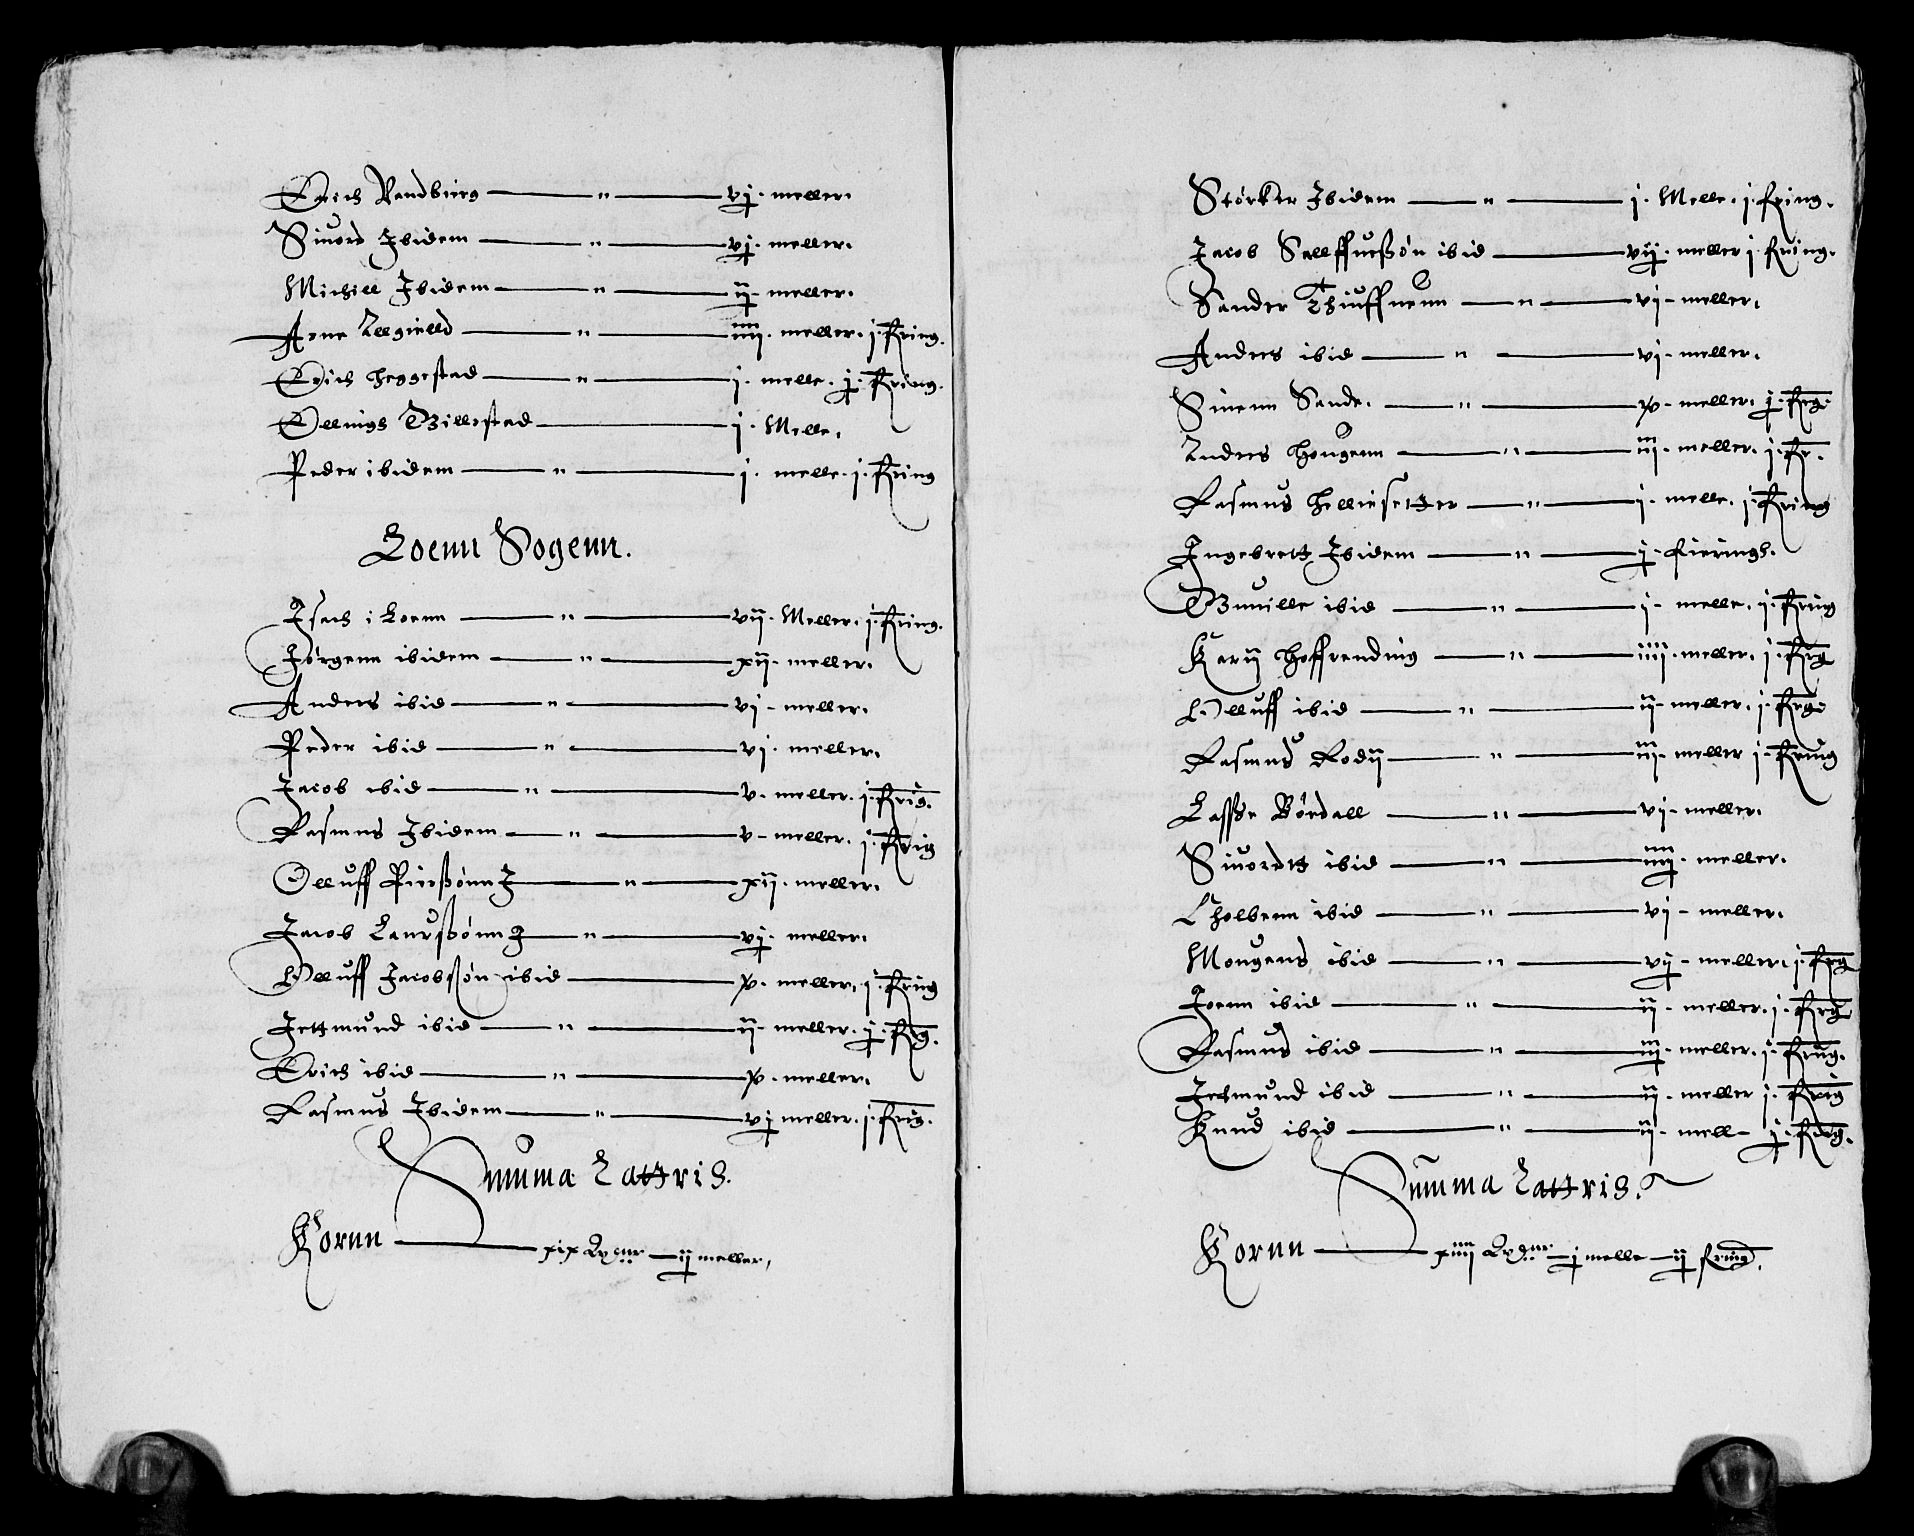 Erich Randbierg — " — vj. meller.
Siuord Ibidem — " — vj. meller.
Michill Ibidem — " — ij. meller.
Arne — " — iiij. meller. j. fring.
Erich heggestad — " — j. melle. j. fring.
Ellnigh Billestad — j. Melle.
Peder ibidem — " — j. melle. j. fring
Loenn Sogenn.
Isach i Loenn — " — vij. Meller. j. fring.
Jørgenn ibidem — " — xij. meller.
Anders ibid — " — vj. meller.
Peder ibid — " — vj. meller.
Jacob ibid — " — v. meller. j. frig.
Rasmus Ibidem — " — v. meller. j. frig
Olluff Pierßønn J — " — xij. meller.
Jacob Laurßønn J — " — vj. meller.
Olluff Jacobßøn ibid — x. meller. j. fring
Jettmund ibid — " — ij. meller. j. frg.
Erich ibid — " — x. meller.
Rasmus Ibidem — " — vj meller. j. frig.
Summa Lattris.
Kornn — xix — ij meller,
Størker Ibidem — " — j. Melle. j. fring.
Jacob Sallffueßøn ibid — vij. meller j. fring.
Sander Thiuffnenn — " — vj. meller.
Anders ibid — " — vj. meller.
Sinenn Sande. — " — x. meller. j. frg.
Anders Hougenn — " — iij. meller. j. fr.
Rasmus Hellesetter — " — j. melle. j. fring
Ingebrett Ibidem — " — j. fieringh.
Gunille ibid — " — j. melle. j. fring
Karij Hoffrending — " — iiij. meller. j. frg
Olluff ibid — " — ij. meller. j. frg
Rasmus Rodij — " — iij. meller j. fring
Laßße Bødall — " — vj. meller.
Siuordtt ibid — " — iiij. meller.
Tholbenn ibid — " — vj. meller.
Mougens ibid — " — vij. meller. j. frg
Joenn ibid — " — ij. meller. j. frg
Rasmus ibid — " — iij. meller. j. frug.
Jetmund ibid — " — ij. meller j. frig
Knud ibid — " — ij. mell j. frig.
Summa Lattris.
Kornn — xiiij — j melle — ij fring.